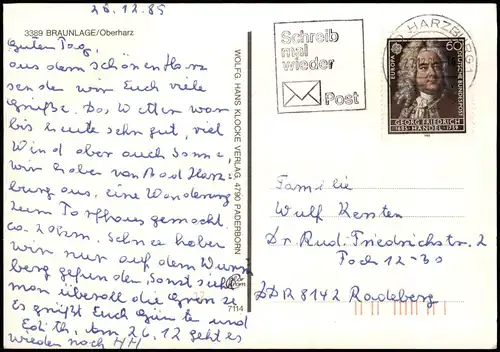 26.12.85
3389 BRAUNLAGE/Oberharz
Guten Tag,
aus dem schönen Harz
senden wir Euch viele
Grüße. Das Wetter war
bis heute sehr gut, viel
Wind aber auch Sonne,
wir haben von Bad Harz-
burg aus, eine Wanderung
zum Torfhaus gemacht.
ca. 20km. Schnee haben
wir nur auf dem Wurm
berg gefunden. Sonst sieht
man überall die Grenze
Es grüßt Euch Günte und
Edith. Am 26.12 geht es
wieder nach HH
WOLFG. HANS KLOCKE VERLAG, 4790 PADERBORN
7114
Schreib
mal
wieder
Post
HARZBURG 1
EUROPA
60
DEUTSCHE BUNDESPOST
GEORG FRIEDRICH
1685 · HÄNDEL · 1759
Familie
Wulf Kersten
Dr. Rud. Friedrichstr. 2
12-30
DDR 8142 Radeberg